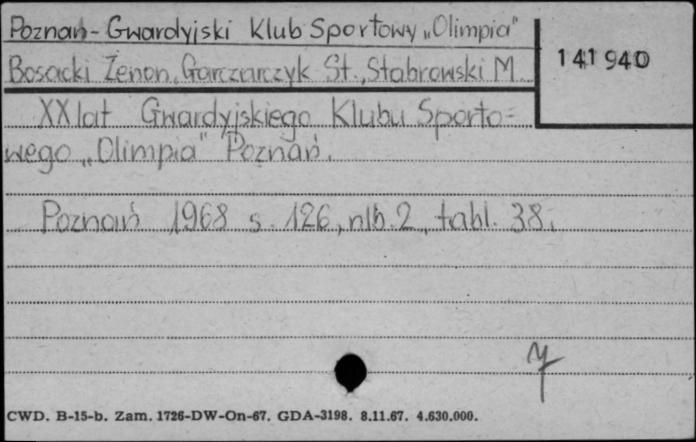 Poznań - Gwardyjski Klub Sportowy „Olimpia"
141940
Bosacki Zenon, Garczarczyk St., Stabrowski M.
XX lat Gwardyjskiego Klubu Sporto=
wego „Olimpia" Poznań.
Poznań 1968 s. 126, nlb. 2, tabl. 38.
CWD. B-15-b. Zam. 1726-DW-On-67. GDA-3198. 8.11.67. 4.630.000.